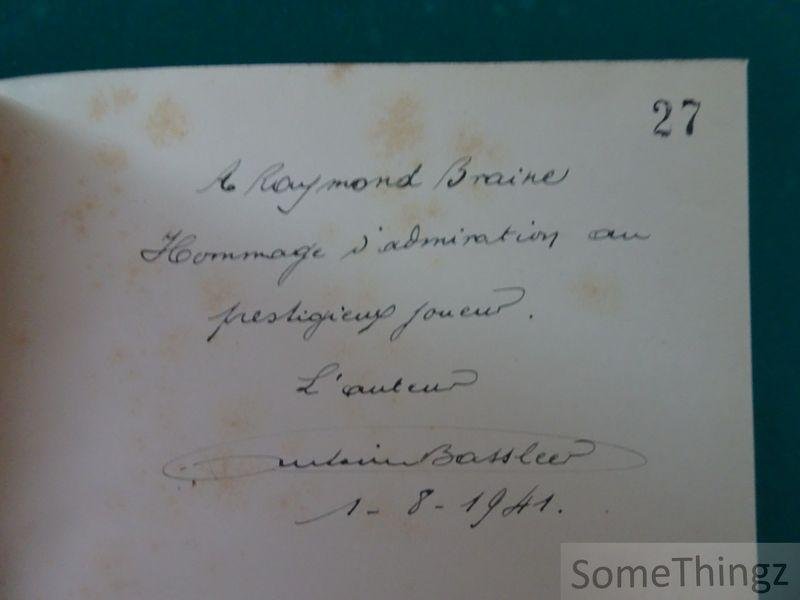 27
A Raymond Braine
Hommage d'admiration au
prestigieux joueur.
L'auteur
Antoine Bassleer
1-8-1941.
SomeThingz